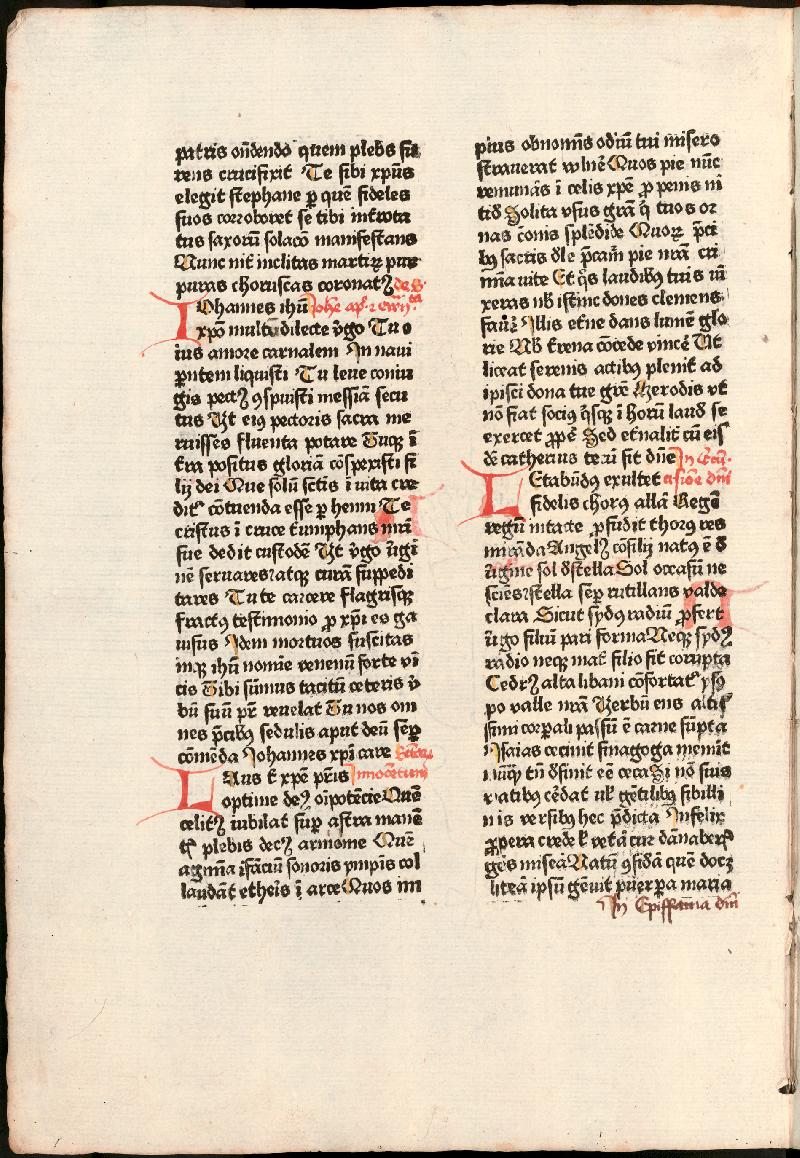 patris oñdendo quem plebs fu
rens crucifixit Te sibi xp̄us
elegit stephane ꝑ quē fideles
suos corroboret se tibi int̄ rota
tus saxorū solacō manifestans
Nunc nit̄ inclitas martiꝝ pur
puras choruscas coronatꝫ de S.
Iohannes ihū Iohē ap̄. ⁊ ewn̄ᵗᵃ
xp̄o multū dilecte v̄go Tu o
ius amore carnalem In naui
pn̄tem liquisti Tu leue coniu
gis pectꝫ ꝯspuisti messiā secu
tus Ut eiꝰ pectoris sacra me
ruisses fluenta potare Tuqꝫ ī
t̄ra positus gloriā cōspexisti fi
lij dei Que solū sctīs ī uita cre
dit̄ cōtuenda esse ꝑ henni Te
cristus ī cruce t̄umphans mr̄i
sue dedit custodē Ut v̄go ūgi
nē seruares ⁊ atqꝫ curā suppedi
tares Tu te carcere flagrisqꝫ
fractꝰ testimonio ꝓ xp̄i es ga
uisus Idem mortuos suscitas
inqꝫ ihū nomīe venenū forte vī
cis Tibi sūmus tacitū ceteris v̄
bū suū pr̄ reuelat Tu nos om
nes p̄cibꝰ sedulis aput deū semꝑ
cōmēda Iohannes xp̄i care Sctōꝝ
Laus t̄ xp̄e pr̄is Innocētum
optime deꝫ oīpotēcie Quē
celitꝫ iubilat suꝑ astra manē
t̄ plebis decꝫ armonie Quē
agmīa īfāciū sonoris ympnis col
laudāt etheis ī arce Quos im
pius obnomīs odiū tui misero
strauerat vulnē Quos pie nūc
remunas ī celis xpē ꝓ penis ni
tid Solita vsus grā q̄ tuos or
nas conis splēdide Quoꝝ p̄ci
bꝰ sactis dle p̄cam̄ pie nrā cri
mīa uite Et q̄s laudibꝰ tuis iū
xeras nb̄ istinc dones clemens
fauꝝ Illis et̄ne dans lumē glo
rie Nb̄ t̄rena cōcede vincē Ut
liceat serenis actibꝰ plenit̄ ad
ipisci dona tue grē Herodis vt
nō fiat sociꝰ q̄sqꝫ ī horū laud se
exercet ꝓpē Sed et̄nalit̄ cū eis
dē catherius tecū sit dn̄e In Ccū
Letabūdꝰ exultet cisiōe dn̄i
fidelis chorꝰ allā Regē
regū intacte ꝓfudit thorꝰ res
mirāda Angelꝫ cōsilij natꝰ ē d
ūgine sol d stella Sol occasū ne
sciēs ⁊ stella semꝑ rutillans valde
clara Sicut sydꝰ radiū ꝓfert
ūgo filiū pari forma Neqꝫ sydꝫ
radio neqꝫ mat̄ filio fit corupta
Cedrꝫ alta libani cōfortat̄ ysoꝰ
po valle nrā Verbū ens altis
simi corꝑali passū ē carne sūpta
Isaias cecinit sinagoga memīt
nūqꝫ tn̄ dsinit eē ceca Si nō suis
vatibꝰ cēdat uł gētilibꝰ sibilli
nis versibꝰ hec p̄dicta Infelix
ꝓpera crede ł vetā cur dānaberꝭ
gēs miseā Natū ꝯsidā quē docꝫ
liteā ipsū gēuit puerꝑa maria
In Epiffania dn̄i